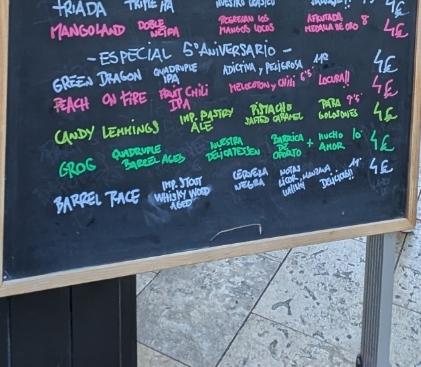 TRIADA TRIPLE IPA NUESTRO CLÁSICO 4€
MANGOLAND DOBLE NEIPA REGRESAN LOS MANGOS LOCOS AFRUTADA MEDALLA DE ORO 8 4€
- ESPECIAL 5º ANIVERSARIO -
GREEN DRAGON QUADRUPLE IPA ADICTIVA y PELIGROSA 11º 4€
PEACH ON FIRE FRUIT CHILI IPA MELOCOTON y CHILI 6'5º LOCURA!! 4€
CANDY LEMMINGS IMP. PASTRY ALE PISTACHO SALTED CARAMEL PARA GOLOSONES 9'5º 4€
GROG QUADRUPLE BARREL AGED NUESTRA DELICATESSEN BARRICA DE OPORTO + MUCHO AMOR 10º 4€
BARREL RACE IMP. STOUT WHISKY WOOD AGED CERVEZA NEGRA NOTAS LICOR, MANZANA DELICIOSA!! 11º 4€